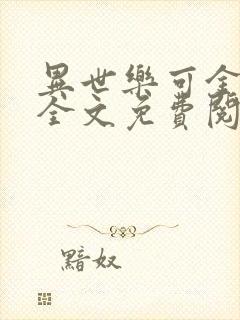 異世樂可全
全文免費閱
黯奴